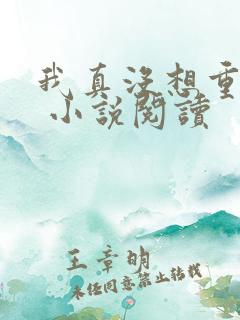 我真没想重
小说阅读
王章明
未经同意禁止转载